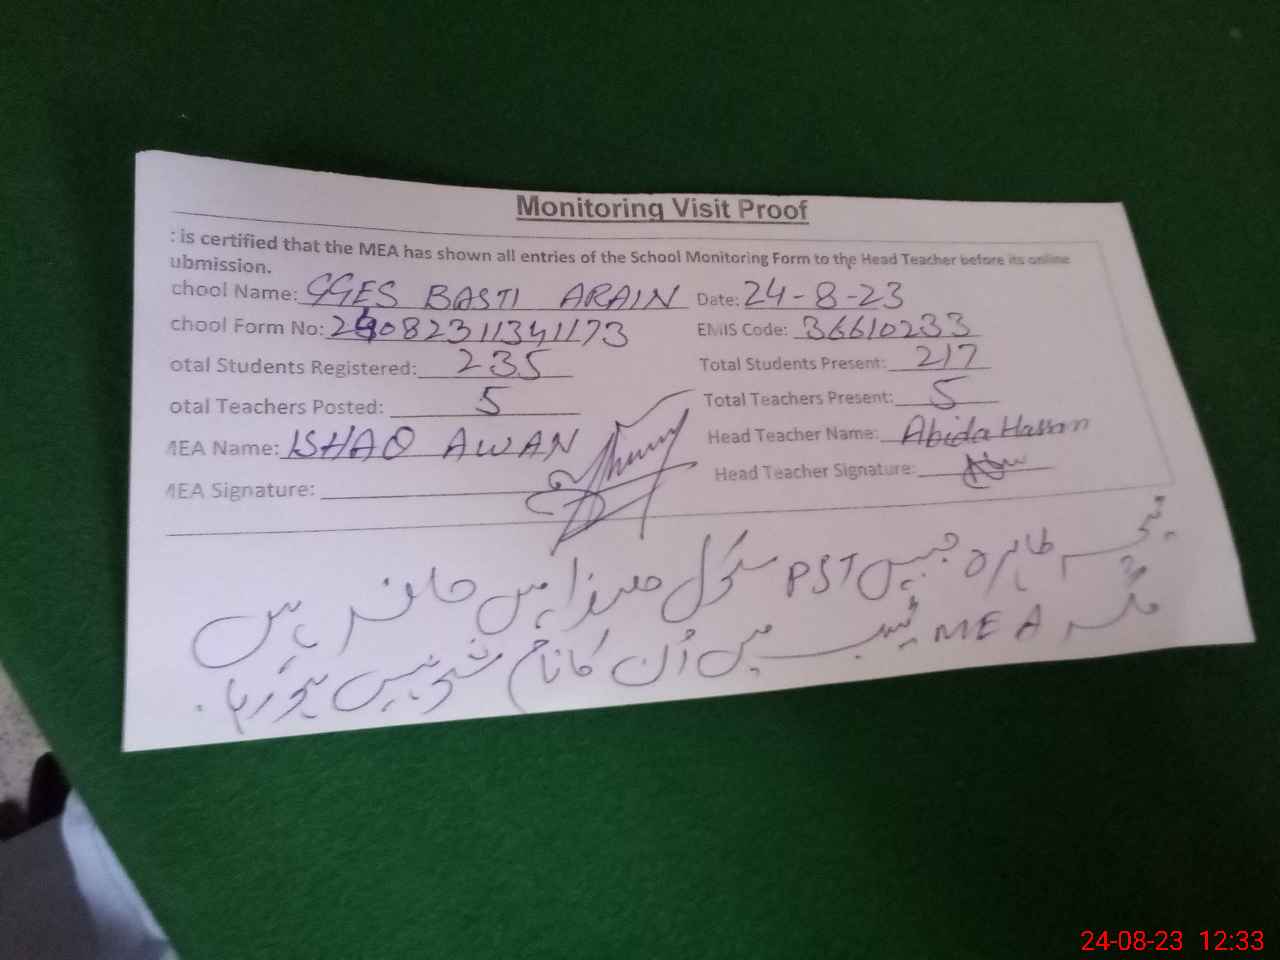 Monitoring Visit Proof
: is certified that the MEA has shown all entries of the School Monitoring Form to the Head Teacher before its online
ubmission.
chool Name: GGES BASTI ARAIN Date: 24-8-23
chool Form No: 24082311341173 EMIS Code: 36610233
otal Students Registered: 235 Total Students Present: 217
otal Teachers Posted: 5 Total Teachers Present: 5
MEA Name: ISHAQ AWAN Head Teacher Name: Abida Hassan
MEA Signature: Head Teacher Signature:
طاہرہ جبیں PST سکول ھذا میں حاضر ہیں
مگر MEA ٹیب میں اُن کا نام شو نہیں ہو رہا۔
24-08-23 12:33